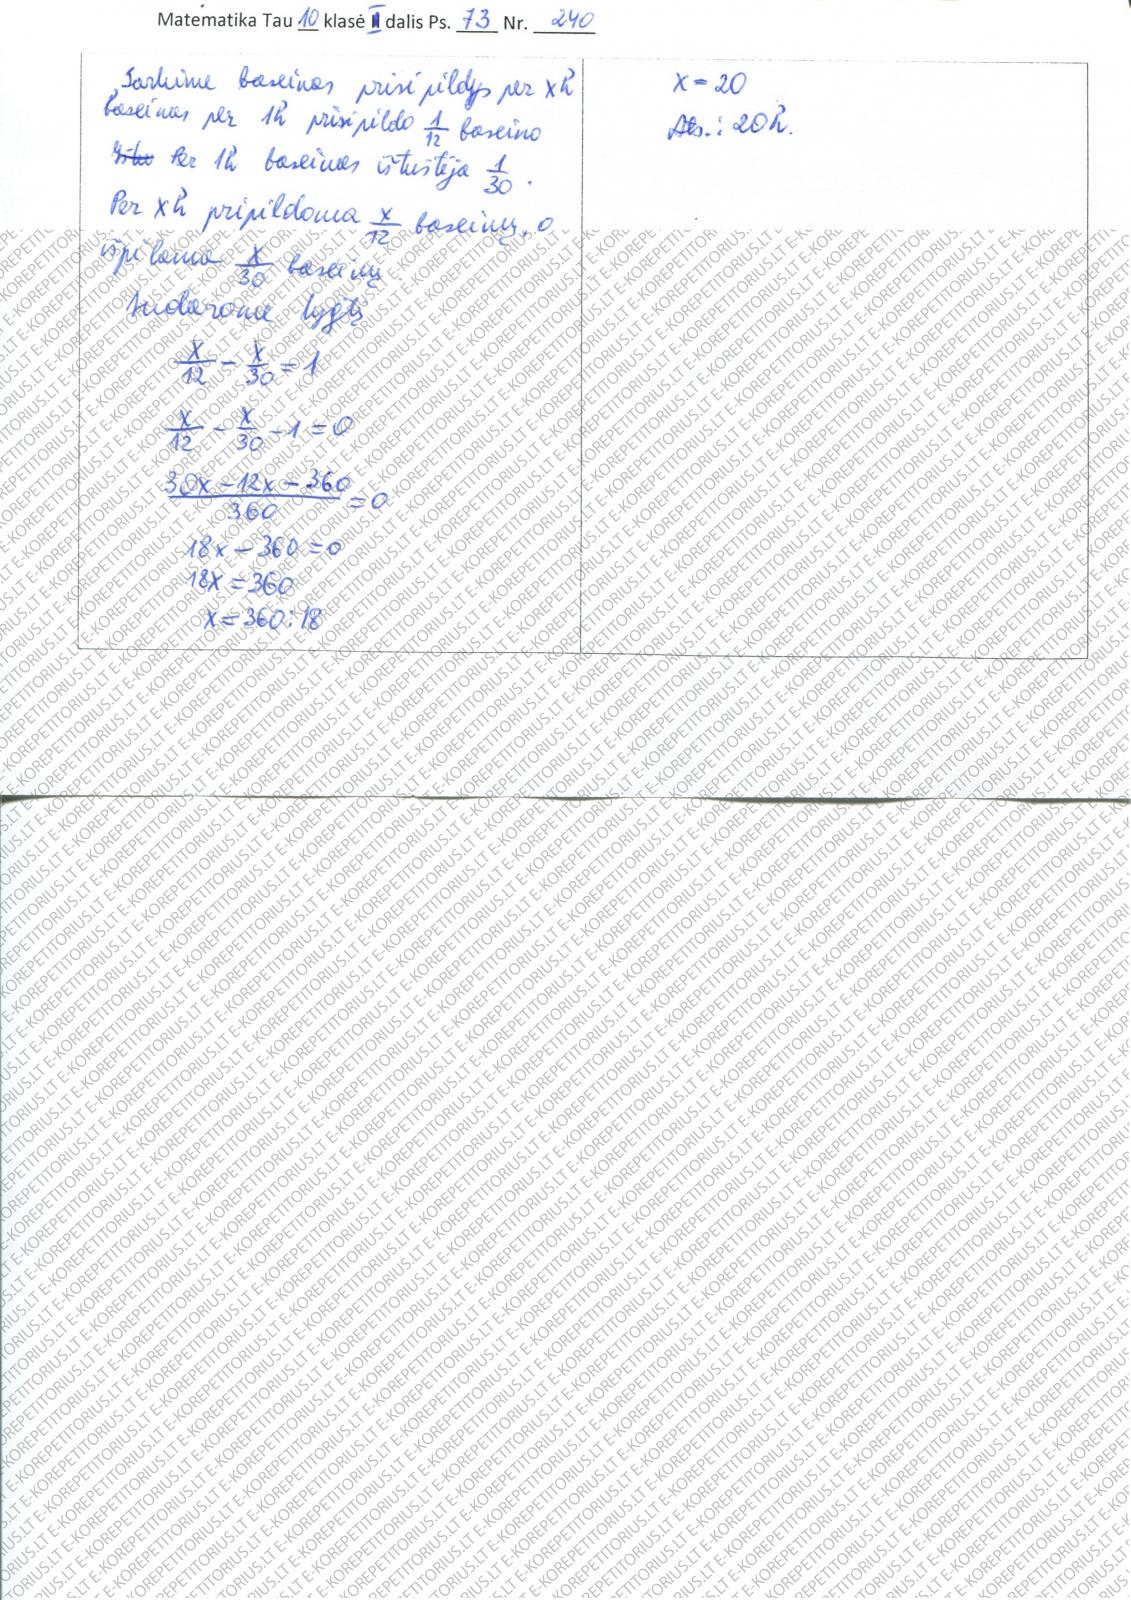 Matematika Tau 10 klasė II dalis Ps. 73 Nr. 240
Tarkime baseinas prisipildys per x h
baseinas per 1h prisipildo 1/12 baseino
Per 1h baseinas ištuštėja 1/30.
Per x h pripildoma x/12 baseinų, o
išpilama x/30 baseinų
Sudarome lygtį
x/12 - x/30 = 1
x/12 - x/30 - 1 = 0
(30x - 12x - 360)/360 = 0
18x - 360 = 0
18x = 360
x = 360 : 18
x = 20
Ats.: 20 h.
E-KOREPETITORIUS.LT